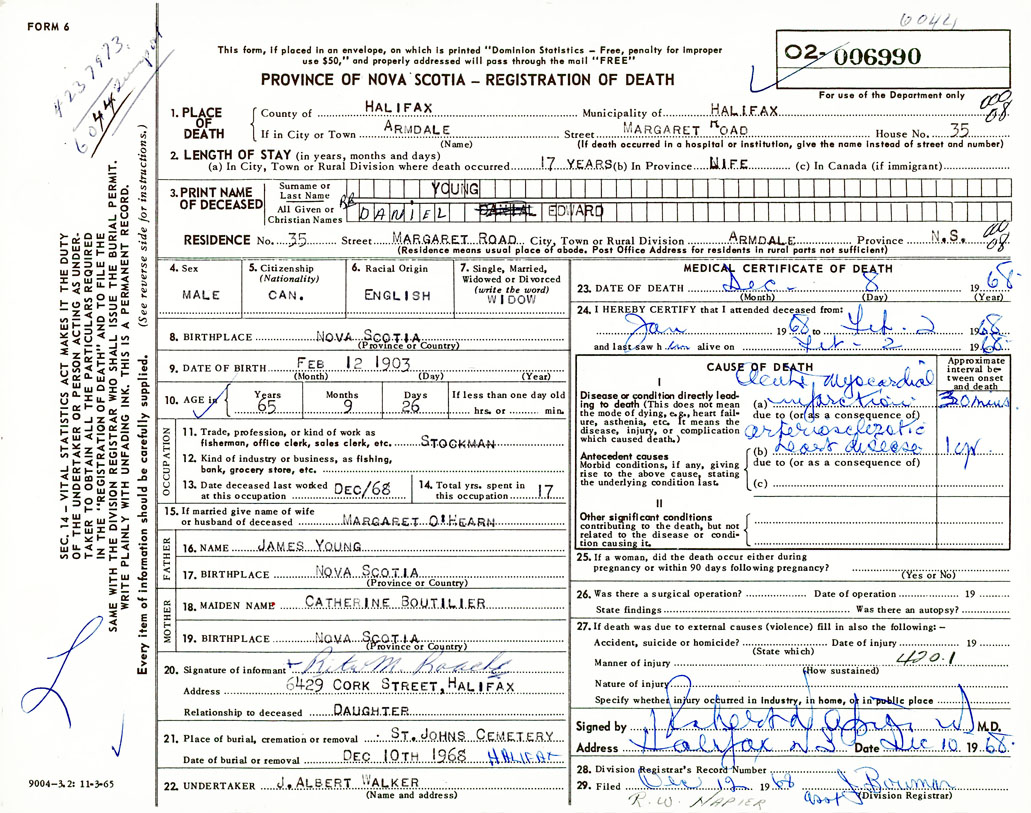 FORM 6
6044
423 7973.
60442
This form, if placed in an envelope, on which is printed "Dominion Statistics – Free, penalty for improper
use $50," and properly addressed will pass through the mail "FREE"
PROVINCE OF NOVA SCOTIA – REGISTRATION OF DEATH
02-006990
For use of the Department only
1. PLACE OF DEATH
County of HALIFAX Municipality of HALIFAX
000 08
If in City or Town ARMDALE Street MARGARET ROAD House No. 35
(Name) (If death occurred in a hospital or institution, give the name instead of street and number)
2. LENGTH OF STAY (in years, months and days)
(a) In City, Town or Rural Division where death occurred 17 YEARS (b) In Province LIFE (c) In Canada (if immigrant)
3. PRINT NAME OF DECEASED
Surname or Last Name YOUNG
All Given or Christian Names DANIEL EDWARD
RESIDENCE No. 35 Street MARGARET ROAD City, Town or Rural Division ARMDALE Province N.S.
000 08
(Residence means usual place of abode. Post Office Address for residents in rural parts not sufficient)
4. Sex
MALE
5. Citizenship
(Nationality)
CAN.
6. Racial Origin
ENGLISH
7. Single, Married,
Widowed or Divorced
(write the word)
WIDOW
8. BIRTHPLACE NOVA SCOTIA
(Province or Country)
9. DATE OF BIRTH FEB 12 1903
(Month) (Day) (Year)
10. AGE in
Years Months Days If less than one day old
65 9 26 hrs. or min.
OCCUPATION
11. Trade, profession, or kind of work as
fisherman, office clerk, sales clerk, etc. STOCKMAN
12. Kind of industry or business, as fishing,
bank, grocery store, etc.
13. Date deceased last worked
at this occupation DEC/68
14. Total yrs. spent in
this occupation 17
15. If married give name of wife
or husband of deceased MARGARET O'HEARN
FATHER
16. NAME JAMES YOUNG
17. BIRTHPLACE NOVA SCOTIA
(Province or Country)
MOTHER
18. MAIDEN NAME CATHERINE BOUTILIER
19. BIRTHPLACE NOVA SCOTIA
(Province or Country)
20. Signature of informant Rita M.
Address 6429 CORK STREET, HALIFAX
Relationship to deceased DAUGHTER
21. Place of burial, cremation or removal ST. JOHNS CEMETERY
Date of burial or removal DEC 10TH 1968 HALIFAX
22. UNDERTAKER J. ALBERT WALKER
(Name and address)
MEDICAL CERTIFICATE OF DEATH
23. DATE OF DEATH Dec – 8 1968
(Month) (Day) (Year)
24. I HEREBY CERTIFY that I attended deceased from:
Jan 1968 to Feb – 2 1968
and last saw him alive on Feb – 2 1968
CAUSE OF DEATH
Approximate interval between onset and death
I
Disease or condition directly leading to death (This does not mean the mode of dying, e.g., heart failure, asthenia, etc. It means the disease, injury, or complication which caused death.)
Acute Myocardial
(a) infarction 30 mins
due to (or as a consequence of)
arteriosclerotic
Antecedent causes
Morbid conditions, if any, giving rise to the above cause, stating the underlying condition last.
(b) heart disease 1 yr.
due to (or as a consequence of)
(c)
II
Other significant conditions
contributing to the death, but not
related to the disease or condition causing it.
25. If a woman, did the death occur either during
pregnancy or within 90 days following pregnancy?
(Yes or No)
26. Was there a surgical operation? Date of operation 19
State findings Was there an autopsy?
27. If death was due to external causes (violence) fill in also the following: –
Accident, suicide or homicide? Date of injury 19
(State which)
Manner of injury 420.1
(How sustained)
Nature of injury
Specify whether injury occurred in Industry, in home, or in public place
Signed by M.D.
Address Halifax N.S. Date Dec 10 1968
28. Division Registrar's Record Number
29. Filed Dec 12 1968 J. Bowman
asst (Division Registrar)
R.W. NAPIER
SEC. 14 – VITAL STATISTICS ACT MAKES IT THE DUTY
OF THE UNDERTAKER OR PERSON ACTING AS UNDER-
TAKER TO OBTAIN ALL THE PARTICULARS REQUIRED
IN THE "REGISTRATION OF DEATH" AND TO FILE THE
SAME WITH THE DIVISION REGISTRAR WHO SHALL ISSUE THE BURIAL PERMIT.
WRITE PLAINLY WITH UNFADING INK. THIS IS A PERMANENT RECORD.
Every item of information should be carefully supplied. (See reverse side for instructions.)
9004-3.2: 11-3-65